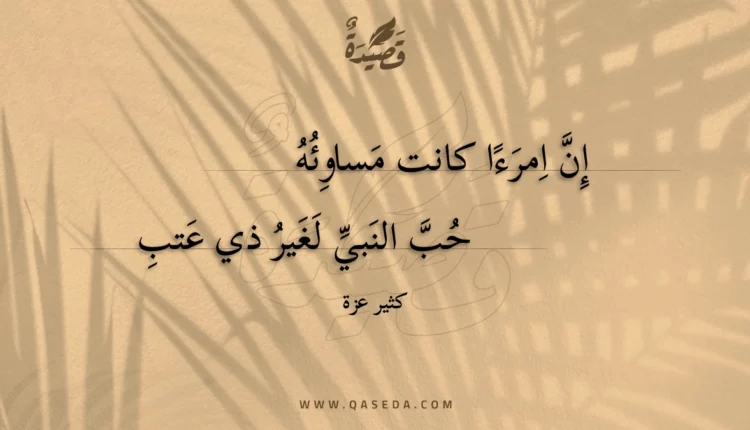 قَصِيْدَةٌ
إِنَّ اِمرَءًا كانت مَساوِئُهُ
حُبَّ النَبيِّ لَغَيرُ ذي عَتبِ
كثير عزة
WWW.QASEDA.COM